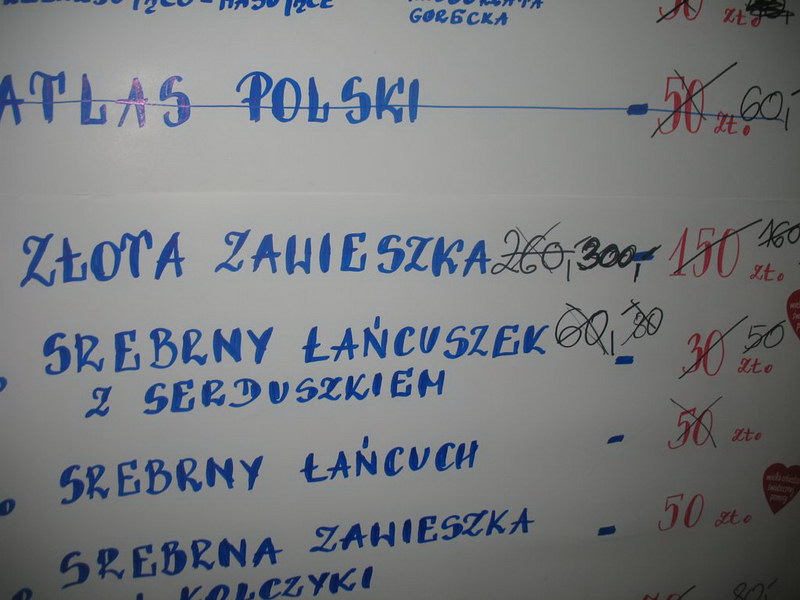 GORECKA
zł.
ATLAS POLSKI - 50 zł. 60,-
ZŁOTA ZAWIESZKA 260,- 300,- - 150 zł. 160
SREBRNY ŁAŃCUSZEK 60,- - 30 zł. 50
Z SERDUSZKIEM
SREBRNY ŁAŃCUCH - 50 zł.
SREBRNA ZAWIESZKA - 50 zł.
KOLCZYKI